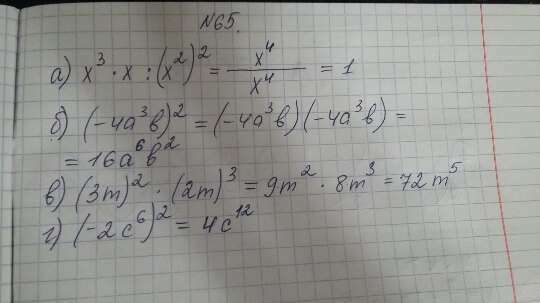 №65.
а) x³ · x : (x²)² = x⁴/x⁴ = 1
б) (-4a³b)² = (-4a³b)(-4a³b) =
= 16a⁶b²
в) (3m)² · (2m)³ = 9m² · 8m³ = 72m⁵
г) (-2c⁶)² = 4c¹²